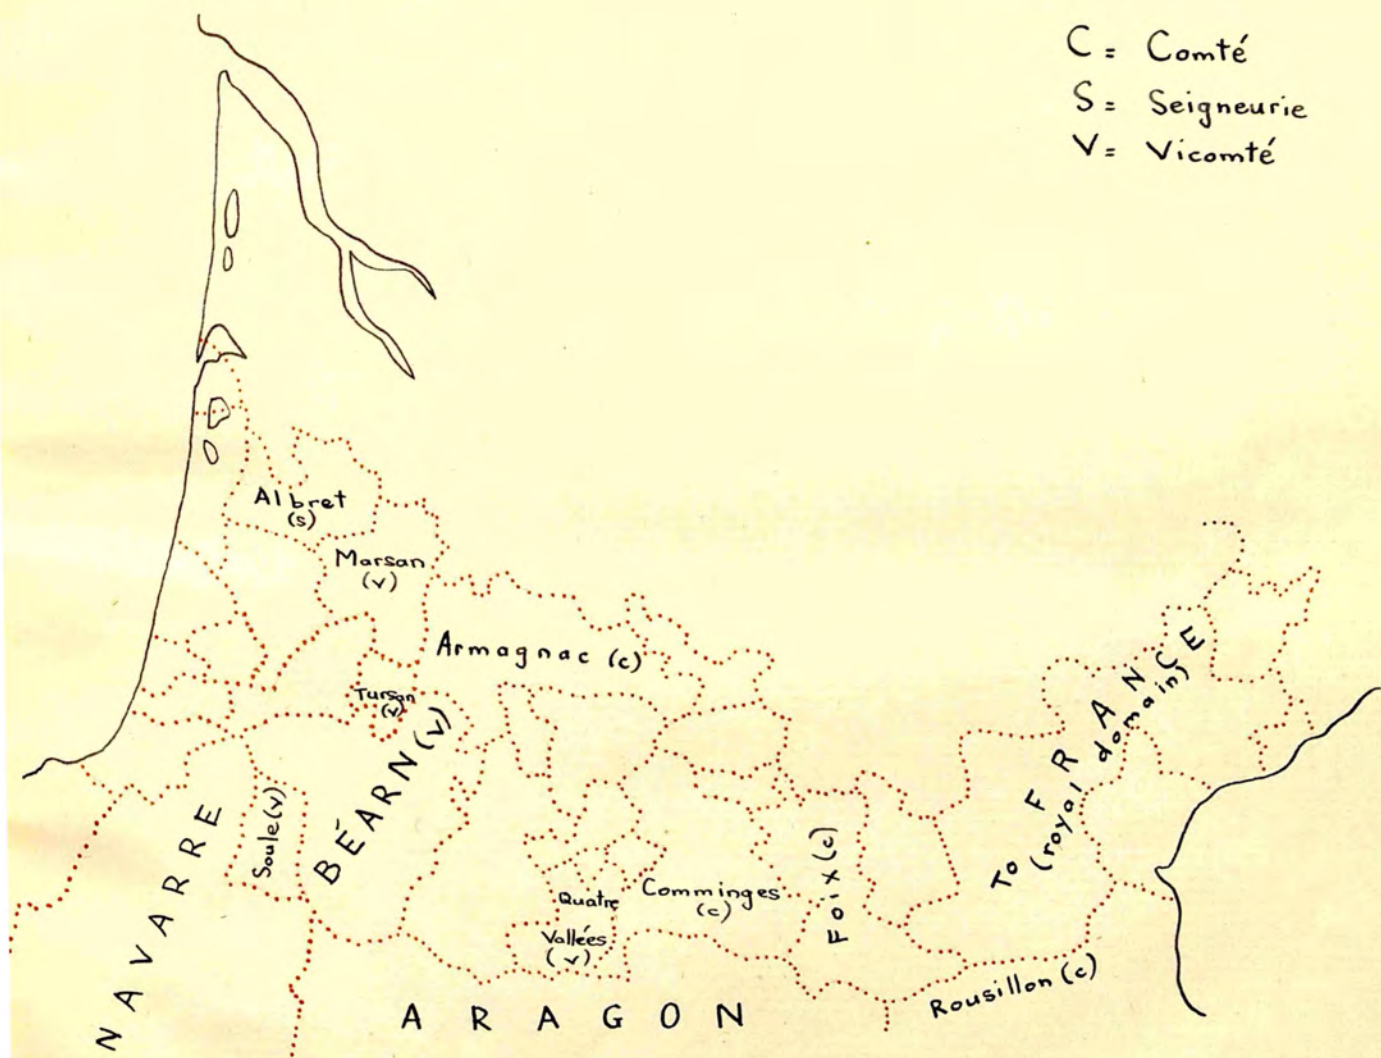 C = Comté
S = Seigneurie
V = Vicomté
Albret
(s)
Marsan
(v)
Armagnac (c)
Tursan
(v)
BÉARN (v)
Soule (v)
NAVARRE
Quatre
Vallées
(v)
Comminges
(c)
Foix (c)
TO FRANCE
(royal domain)
Rousillon (c)
ARAGON